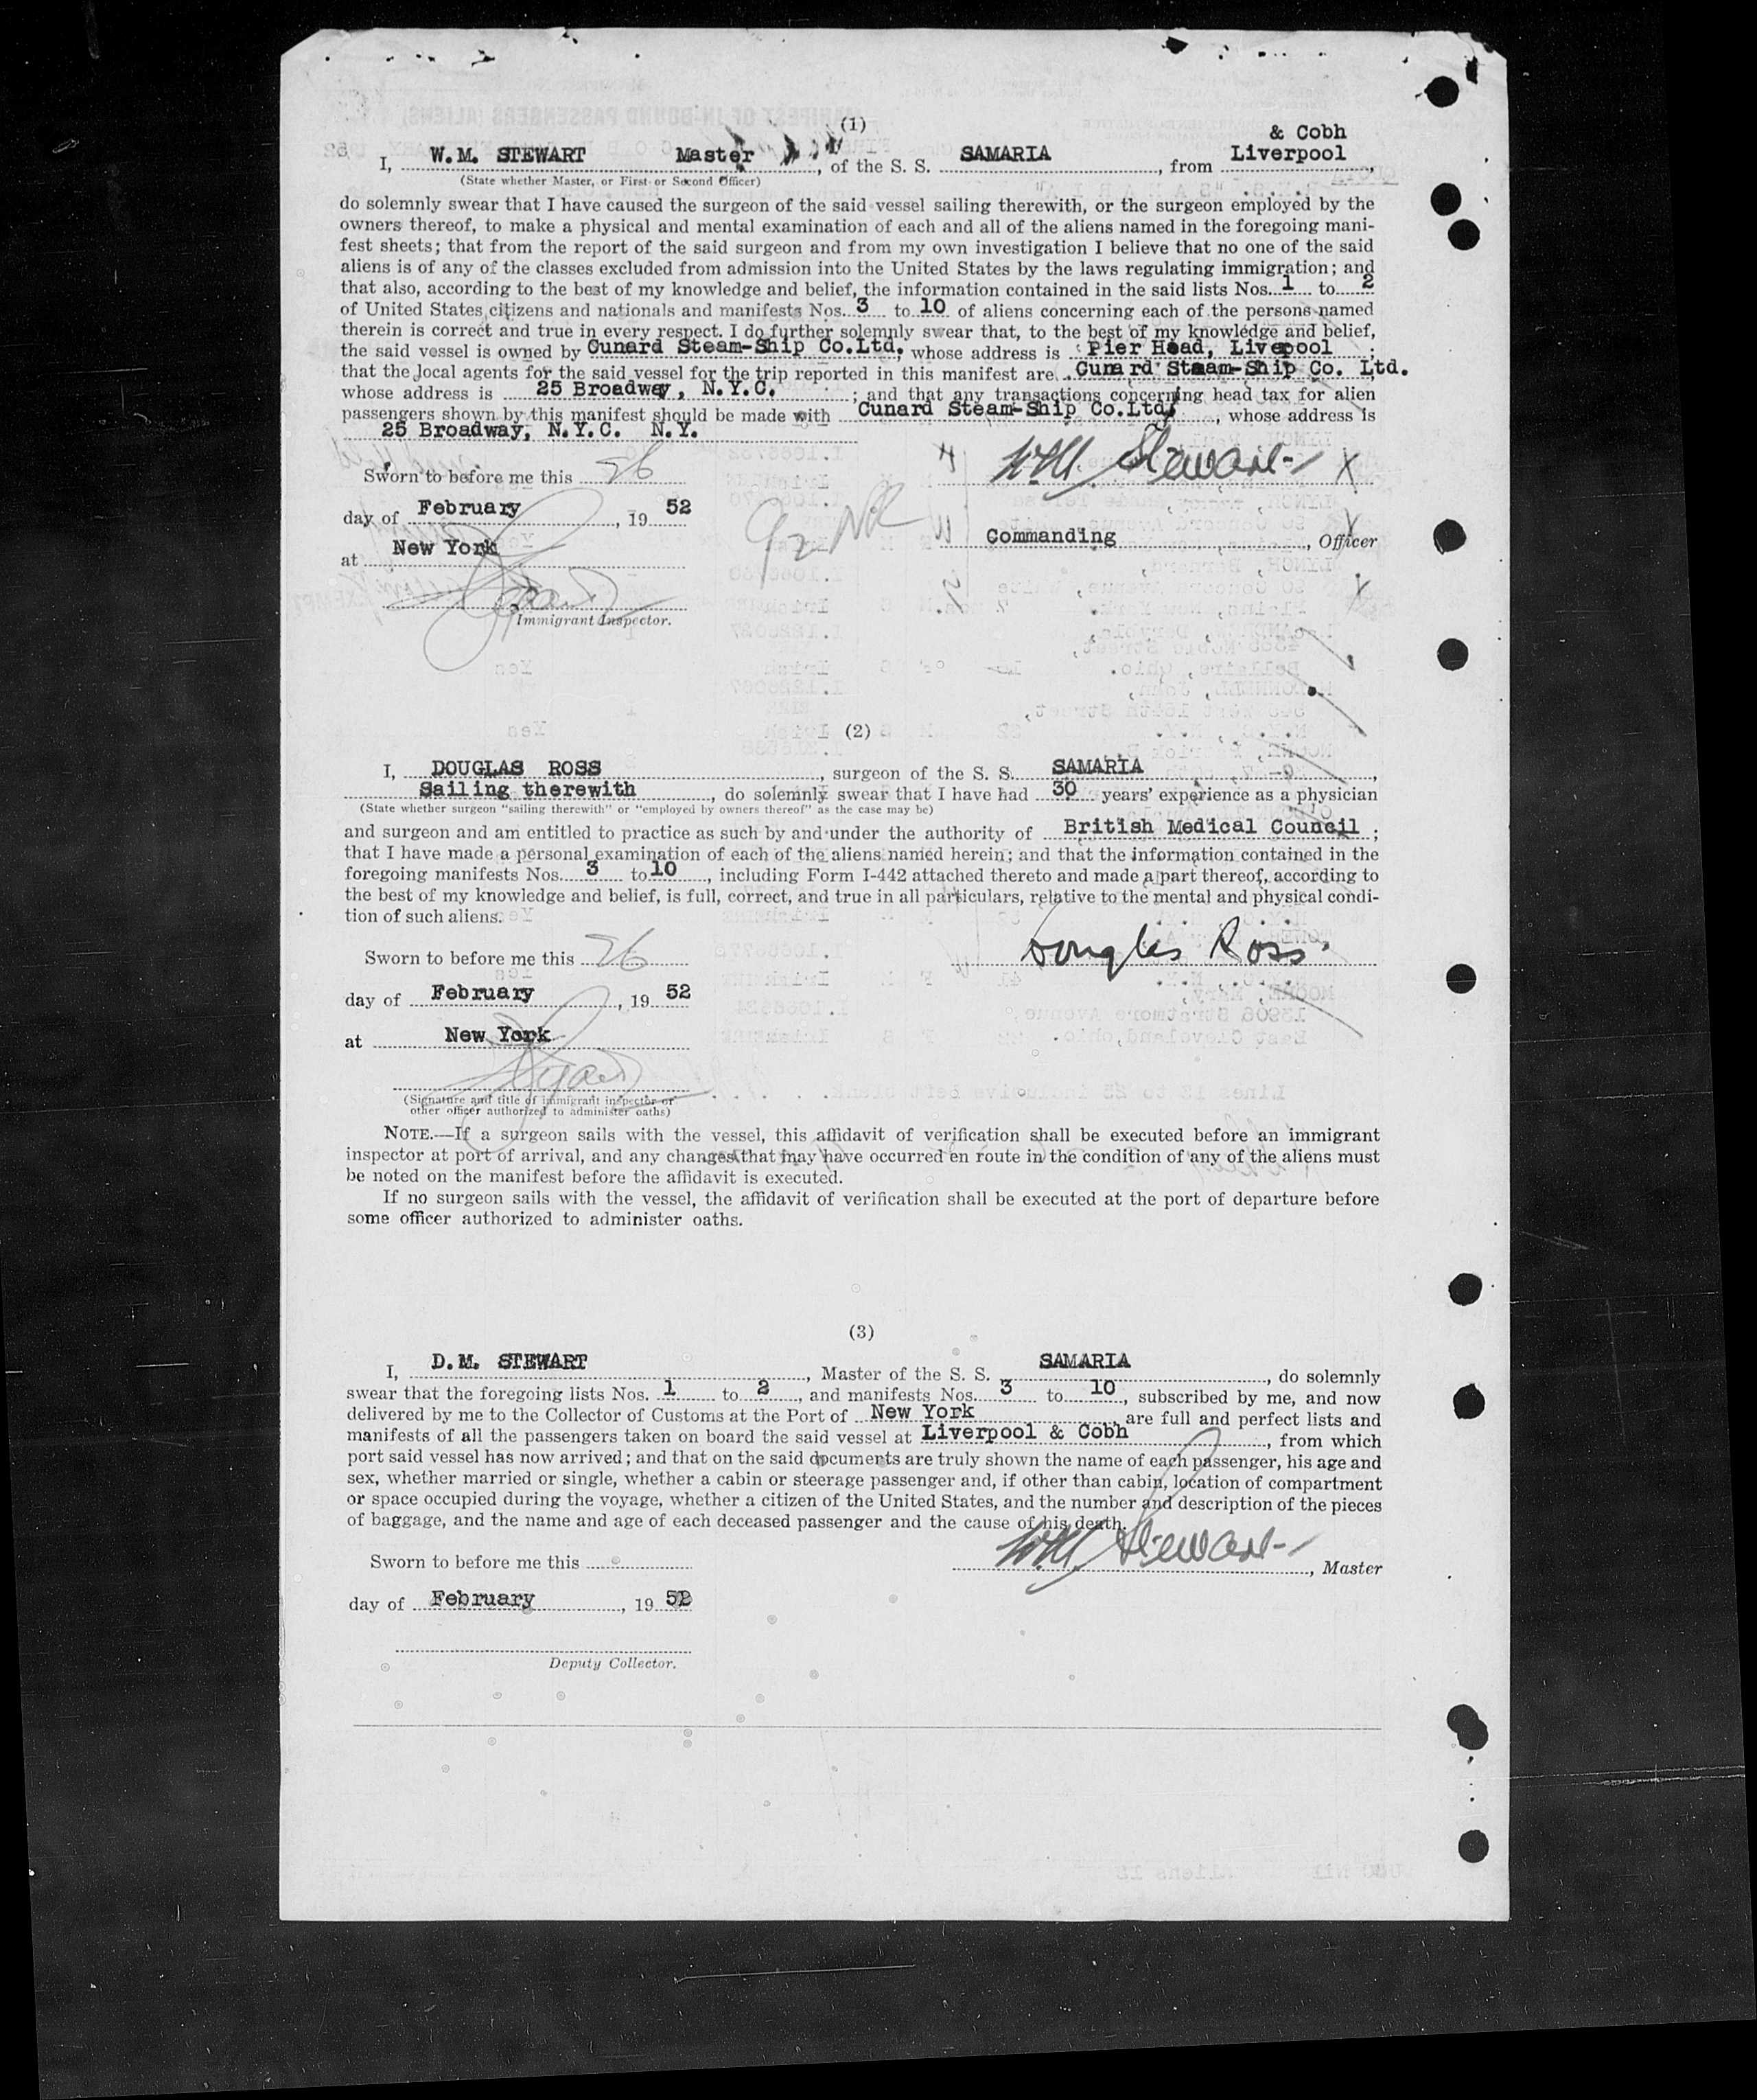 (1)
& Cobh
I, W.M. STEWART Master, of the S. S. SAMARIA, from Liverpool,
(State whether Master, or First or Second Officer)
do solemnly swear that I have caused the surgeon of the said vessel sailing therewith, or the surgeon employed by the
owners thereof, to make a physical and mental examination of each and all of the aliens named in the foregoing mani-
fest sheets; that from the report of the said surgeon and from my own investigation I believe that no one of the said
aliens is of any of the classes excluded from admission into the United States by the laws regulating immigration; and
that also, according to the best of my knowledge and belief, the information contained in the said lists Nos. 1 to 2
of United States citizens and nationals and manifests Nos. 3 to 10 of aliens concerning each of the persons named
therein is correct and true in every respect. I do further solemnly swear that, to the best of my knowledge and belief,
the said vessel is owned by Cunard Steam-Ship Co.Ltd. whose address is Pier Head, Livepool;
that the local agents for the said vessel for the trip reported in this manifest are Cunard Steam-Ship Co. Ltd.
whose address is 25 Broadway, N.Y.C.; and that any transactions concerning head tax for alien
passengers shown by this manifest should be made with Cunard Steam-Ship Co.Ltd, whose address is
25 Broadway, N.Y.C. N.Y.
W.M. Stewart
Sworn to before me this 26
day of February, 19 52
Commanding, Officer
at New York
Immigrant Inspector.
(2)
I, DOUGLAS ROSS, surgeon of the S. S. SAMARIA,
Sailing therewith, do solemnly swear that I have had 30 years' experience as a physician
(State whether surgeon "sailing therewith" or "employed by owners thereof" as the case may be)
and surgeon and am entitled to practice as such by and under the authority of British Medical Council;
that I have made a personal examination of each of the aliens named herein; and that the information contained in the
foregoing manifests Nos. 3 to 10, including Form I-442 attached thereto and made a part thereof, according to
the best of my knowledge and belief, is full, correct, and true in all particulars, relative to the mental and physical condi-
tion of such aliens.
Douglas Ross.
Sworn to before me this 26
day of February, 19 52
at New York
(Signature and title of immigrant inspector or
other officer authorized to administer oaths)
NOTE.—If a surgeon sails with the vessel, this affidavit of verification shall be executed before an immigrant
inspector at port of arrival, and any changes that may have occurred en route in the condition of any of the aliens must
be noted on the manifest before the affidavit is executed.
If no surgeon sails with the vessel, the affidavit of verification shall be executed at the port of departure before
some officer authorized to administer oaths.
(3)
I, D.M. STEWART, Master of the S. S. SAMARIA, do solemnly
swear that the foregoing lists Nos. 1 to 2, and manifests Nos. 3 to 10, subscribed by me, and now
delivered by me to the Collector of Customs at the Port of New York are full and perfect lists and
manifests of all the passengers taken on board the said vessel at Liverpool & Cobh, from which
port said vessel has now arrived; and that on the said documents are truly shown the name of each passenger, his age and
sex, whether married or single, whether a cabin or steerage passenger and, if other than cabin, location of compartment
or space occupied during the voyage, whether a citizen of the United States, and the number and description of the pieces
of baggage, and the name and age of each deceased passenger and the cause of his death.
W.M. Stewart
Sworn to before me this
, Master
day of February, 19 52
Deputy Collector.